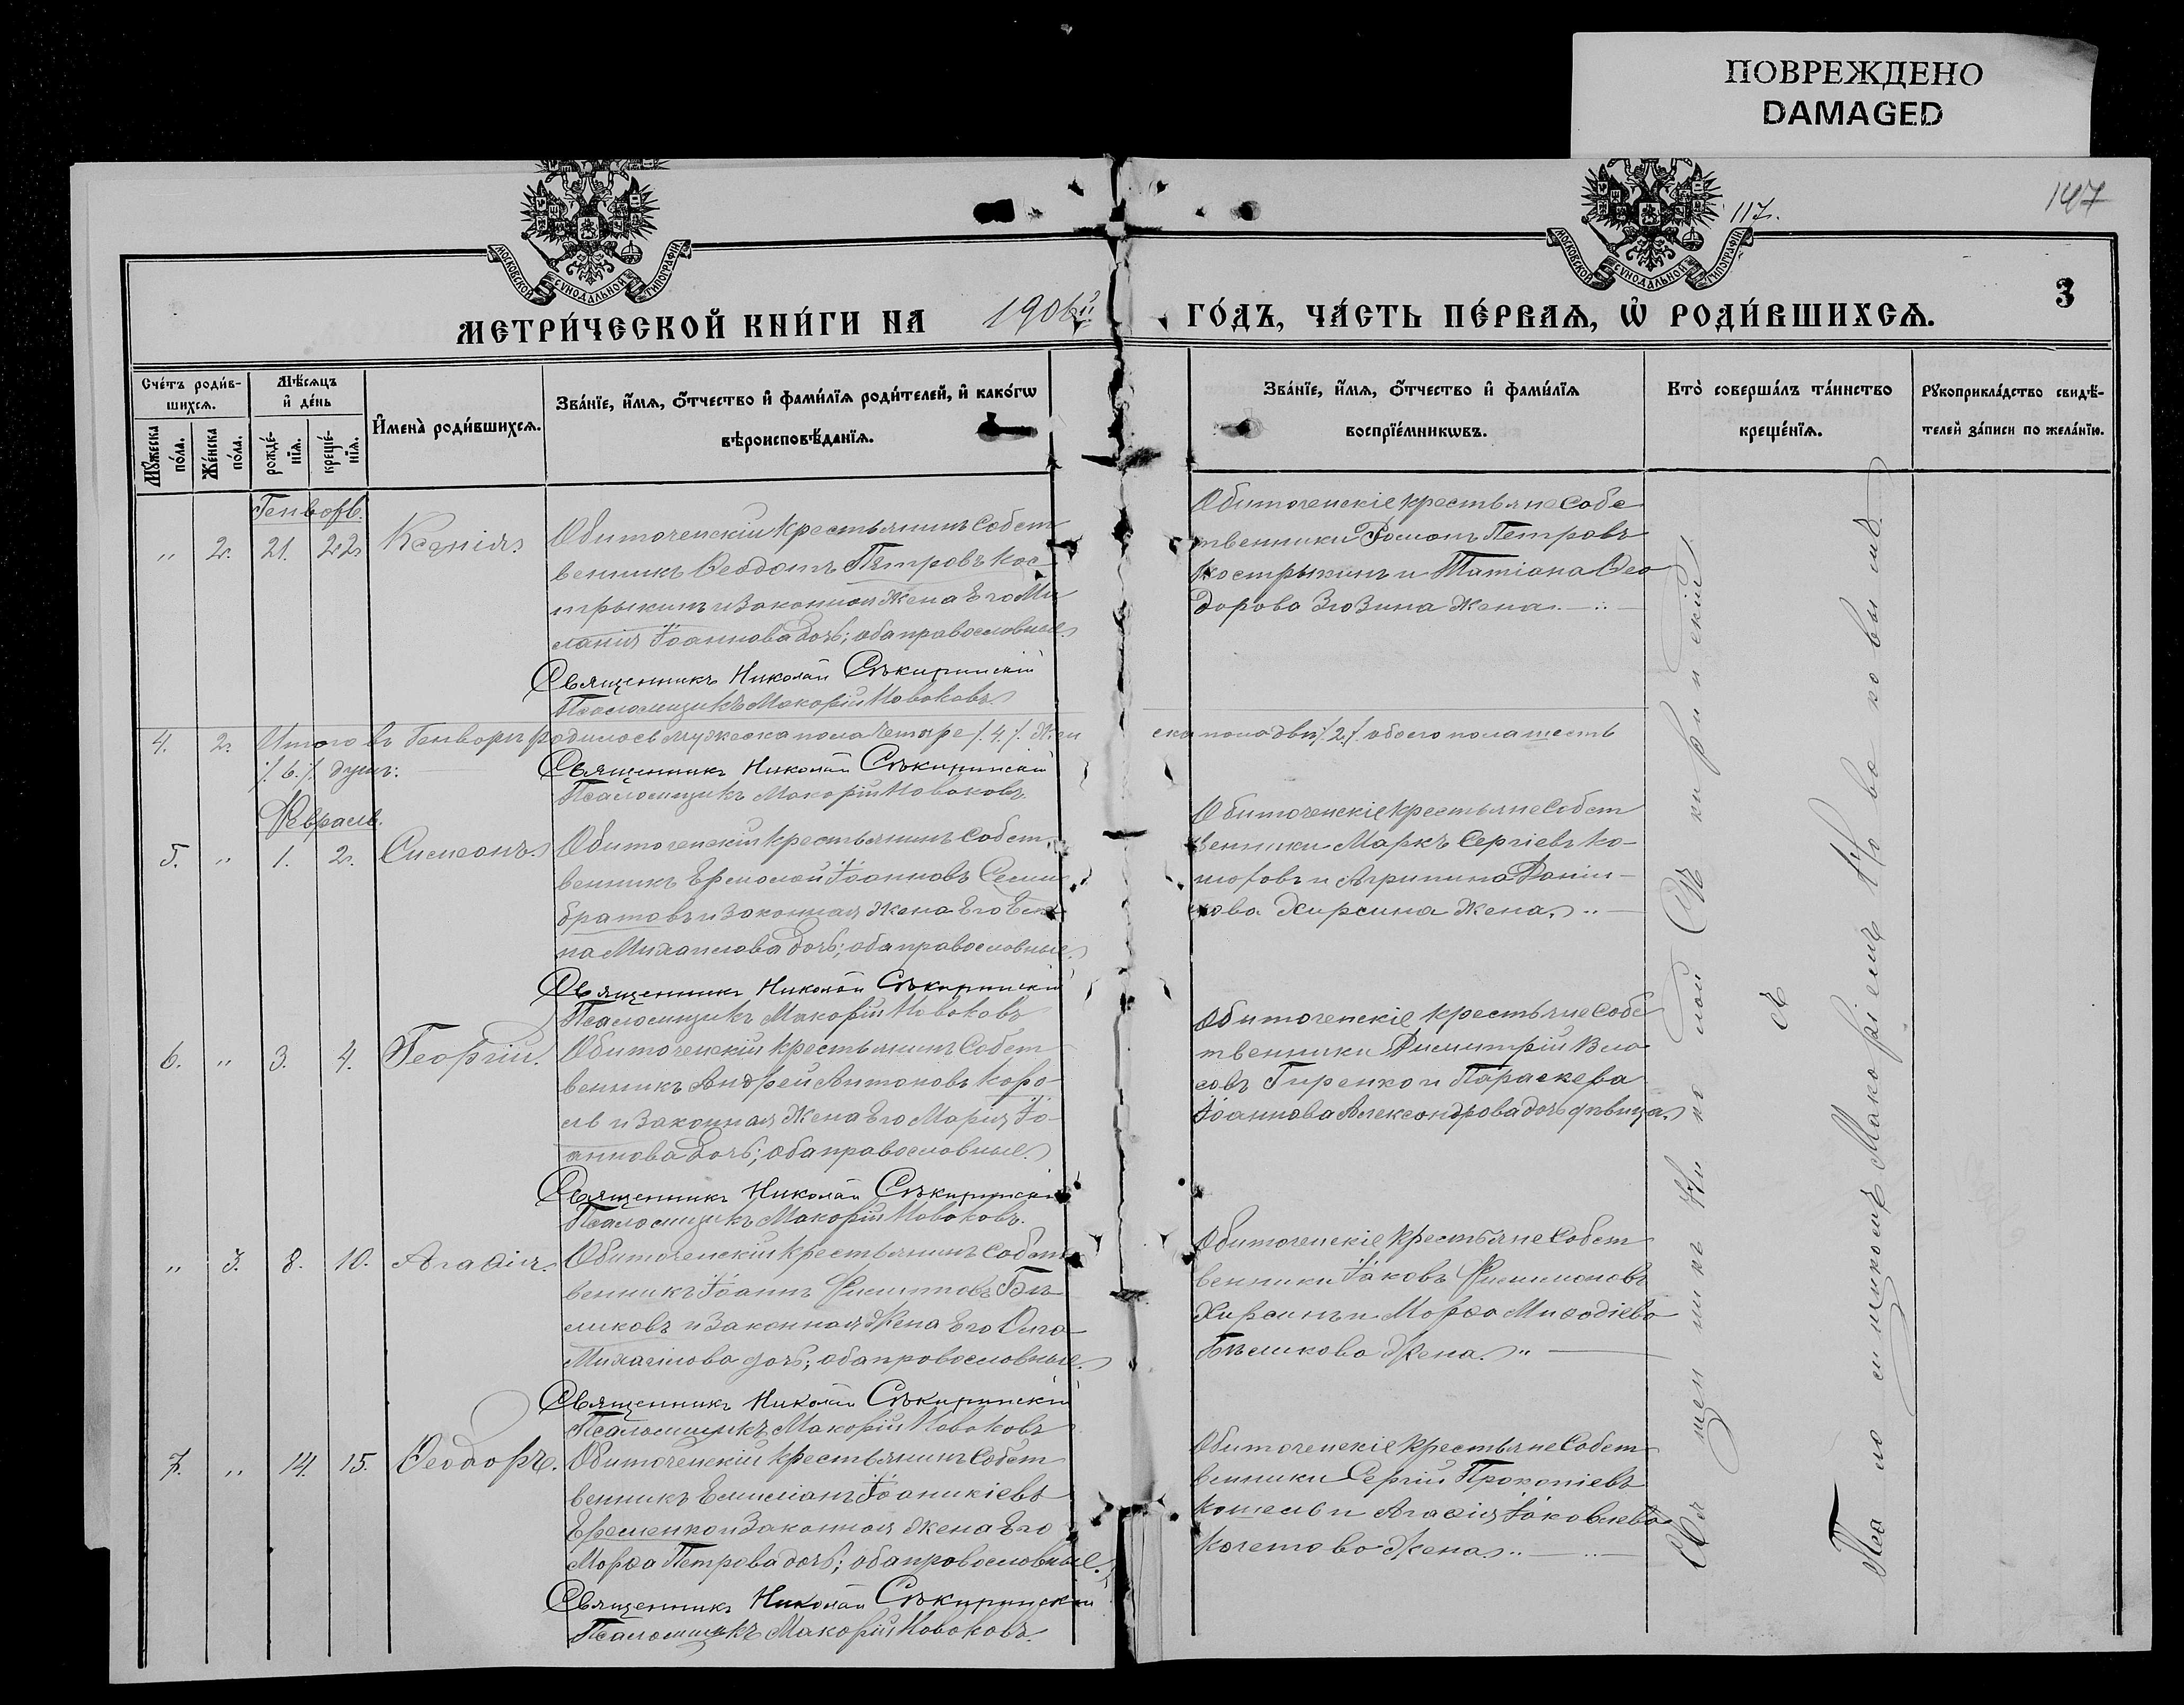 ПОВРЕЖДЕНО
DAMAGED
147
117.
МОСКОВСКОЙ СУНОДАЛЬНОЙ ТИПОГРАФІИ
МОСКОВСКОЙ СУНОДАЛЬНОЙ ТИПОГРАФІИ
3
МЕТРИ́ЧЕСКОЙ КНИ́ГИ НА 1906й
ГО́ДЪ, ЧА́СТЬ ПЕ́РВАѦ, Ѡ҆ РОДИ́ВШИХСѦ.
Сче́тъ роди́в-
шихсѧ.
Мꙋ́жеска по́ла.
Же́нска по́ла.
Мѣ́сѧцъ
и҆ де́нь
рожде́-
нїѧ.
креще́-
нїѧ.
И҆мена̀ роди́вшихсѧ.
Зва́нїе, и҆́мѧ, ѻ҆́тчество и҆ фами́лїѧ роди́телей, и҆ како́гѡ
вѣроисповѣ́данїѧ.
Зва́нїе, и҆́мѧ, ѻ҆́тчество и҆ фами́лїѧ
воспрїе́мникѡвъ.
Кто̀ соверша́лъ та́инство
креще́нїѧ.
Рꙋкоприкла́дство свидѣ́-
телей за́писи по жела́нїю.
Генворь.
" 2. 21. 22. Ксенія.
Обиточенскій крестьянинъ собст
венникъ Ѳеодотъ Петровъ Кос
трыкинъ и законная жена его Ме
ланія Іоаннова дочь; оба православные.
Священникъ Николай Сѣкиринскій
Псаломщикъ Макарій Новаковъ
Обиточенскіе крестьяне собс
твенники Романъ Петровъ
Кострыкинъ и Татіана Ѳео
дорова Зюзина жена.
4. 2. Итого въ Генворѣ родилось мужеска пола четыре /.4./. жен
ска пола двѣ /.2./. обоего пола шесть
/.6./. душъ.
Священникъ Николай Сѣкиринскій
Псаломщикъ Макарій Новаковъ.
Февраль.
5. " 1. 2. Симеонъ.
Обиточенскій крестьянинъ собст
венникъ Ермолай Іоанновъ Семи
братовъ и законная жена его Еле
на Михаилова дочь; оба православные.
Священникъ Николай Сѣкиринскій
Псаломщикъ Макарій Новаковъ
Обиточенскіе крестьяне собст
венники Маркъ Сергіевъ Ко-
Агрипина Даніи-
лова Хирсина жена.
6. " 3. 4. Георгій.
Обиточенскій крестьянинъ собст
венникъ Андрей Антоновъ Коро-
ль и законная жена его Марія Іо-
аннова дочь; оба православные.
Священникъ Николай Сѣкиринскій
Псаломщикъ Макарій Новаковъ.
Обиточенскіе крестьяне собс
твенники Димитрій Вла
совъ Гиренко и Параскева
Іоаннова Александрова дочь дѣвица.
" 3. 8. 10. Агаѳія.
Обиточенскій крестьянинъ собст
венникъ Іоаннъ Филипповъ Бѣ
ликовъ и законная жена его Олга
Михаилова дочь; оба православные.
Священникъ Николай Сѣкиринскій
Псаломщикъ Макарій Новаковъ
Обиточенскіе крестьяне собст
венники Іаковъ Филимоновъ
Хирсинъ и Марѳа Миѳодіева
Бѣликова жена.
7. " 14. 15. Ѳеодоръ.
Обиточенскій крестьянинъ собст
венникъ Емиліанъ Іоаникіевъ
Еременко и законная жена его
Марѳа Петрова дочь; оба православные.
Священникъ Николай Сѣкиринскій
Псаломщикъ Макарій Новаковъ.
Обиточенскіе крестьяне собст
венники Сергій Прокопіевъ
Кошель и Агаѳія Іаковлева
Кочетова жена.
Священникъ Николай Сѣкиринскій
съ
Псаломщикомъ Макаріемъ Новаковымъ.